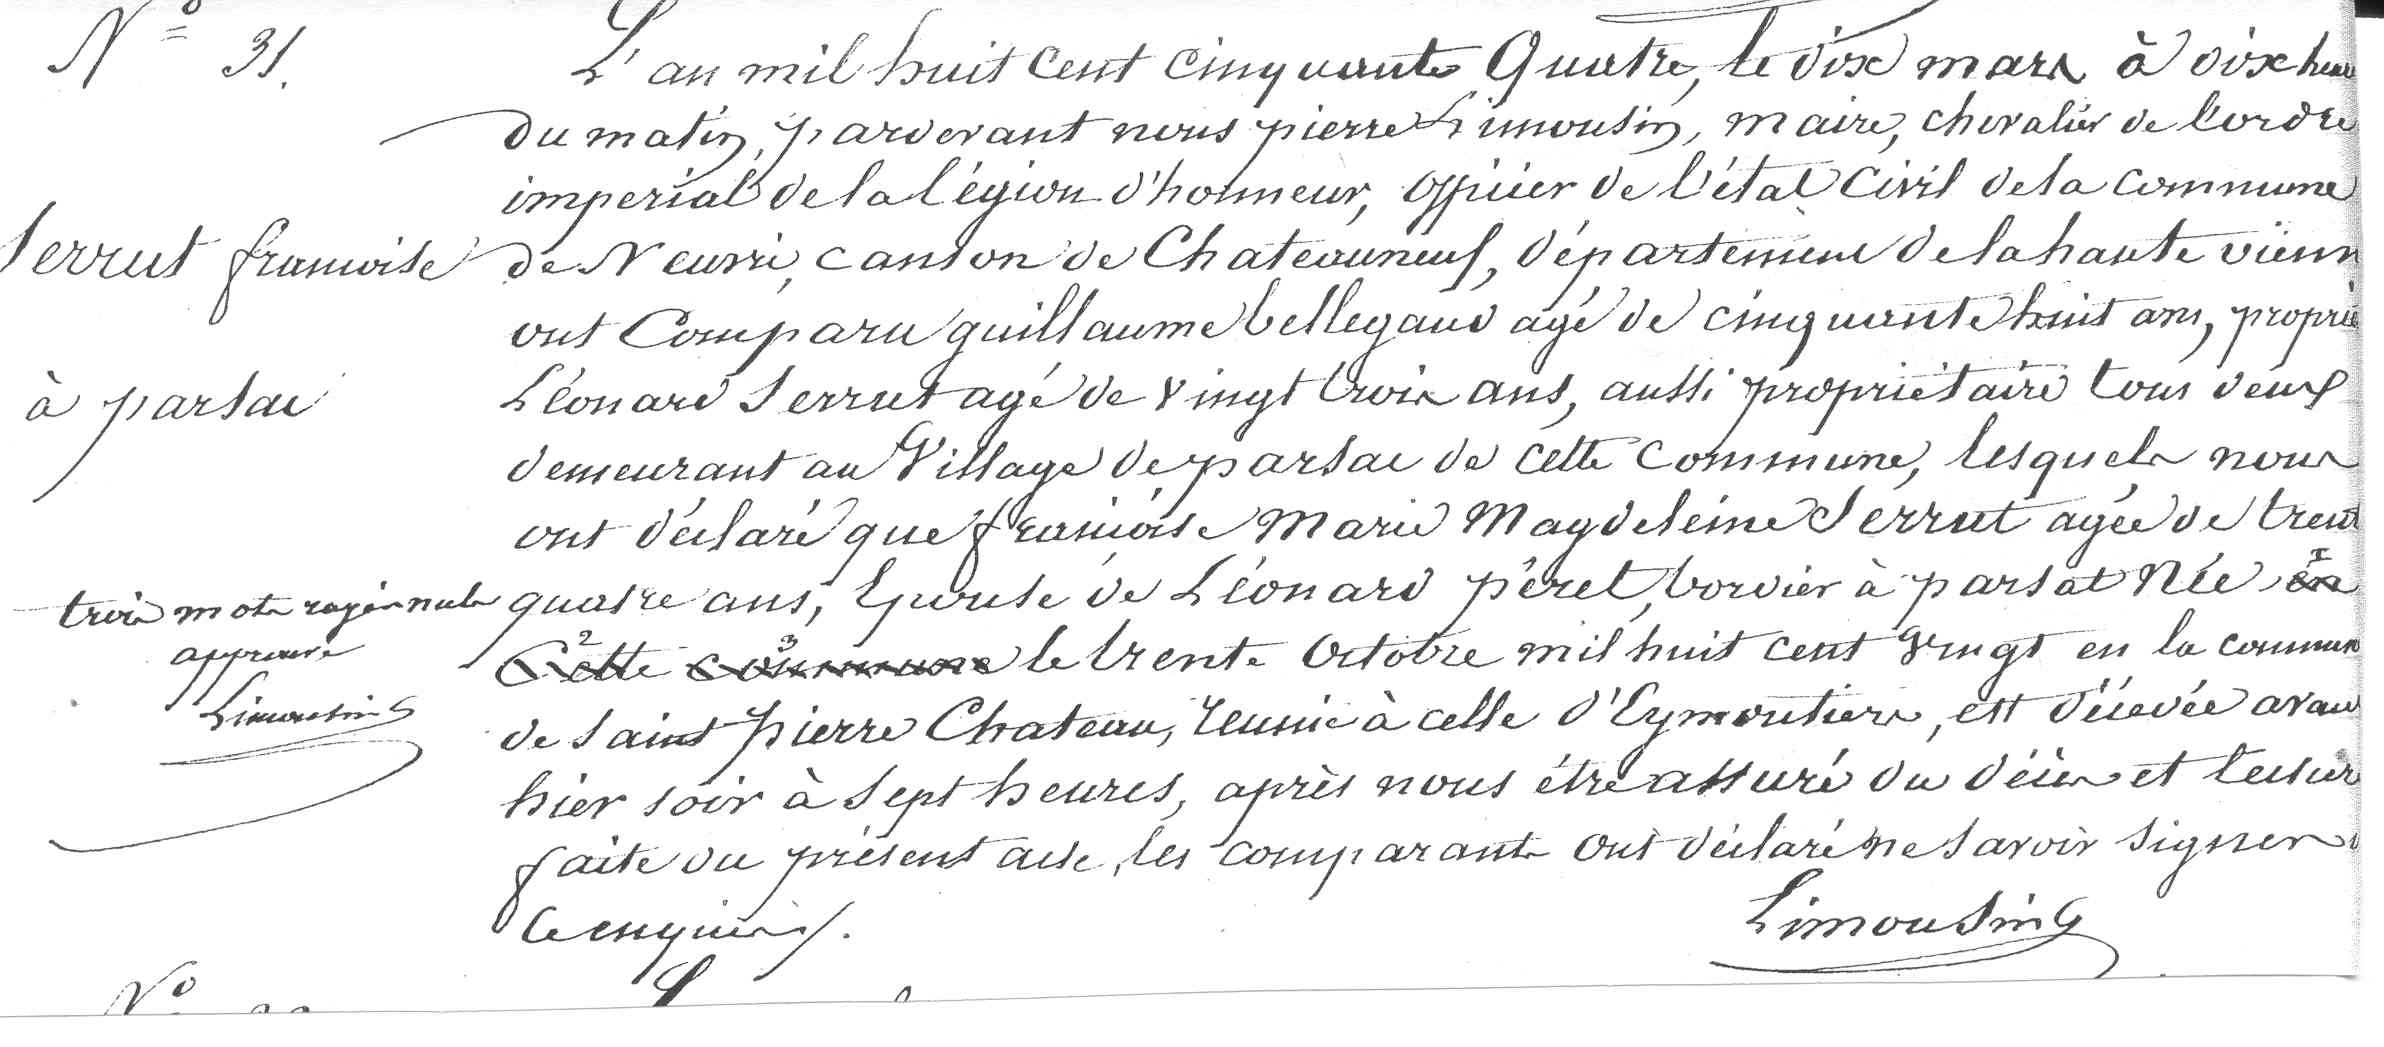 N° 31.
L'an mil huit cent cinquante quatre, le dix mars à dix heures
du matin, pardevant nous pierre Limousin, maire, chevalier de l'ordre
imperial de la légion d'honneur, officier de l'état civil de la commune
Serrut francoise
de Neuvic, canton de Chateauneuf, département de la haute vienn
ont comparu guillaume bellegaud agé de cinquante huit ans, proprié
à parsac
Léonard Serrut agé de vingt trois ans, aussi propriétaire tous deux
demeurant au village de parsac de cette commune, lesquels nous
ont déclaré que francoise marie magdeleine Serrut agée de trent
trois mots rayés nuls
approuvé
Limousin
quatre ans, épouse de Léonard péret, bordier à parsat née en
cette commune le trente octobre mil huit cent vingt en la commun
de saint pierre chateau, réunie à celle d'Eymoutiers, est décédée avan
hier soir à sept heures, après nous être assuré du décès et lectur
faite du présent acte, les comparants ont déclaré ne savoir signer
Ce enquis.
Limousin
N°